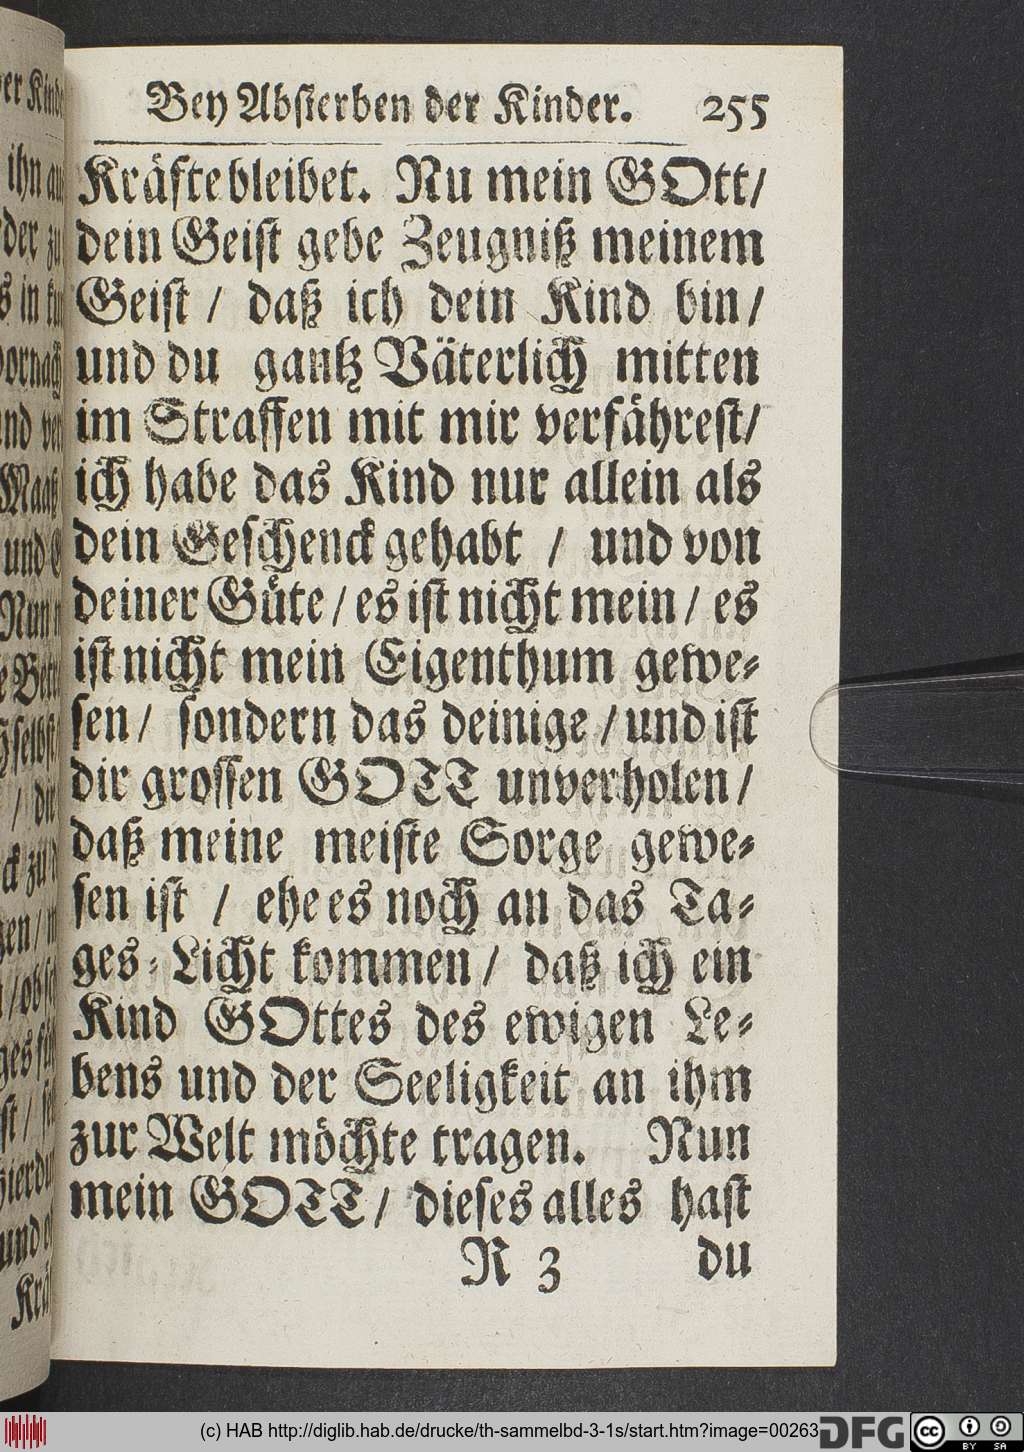 Bey Absterben der Kinder. 255
Kräfte bleibet. Nu mein GOtt/
dein Geist gebe Zeugniß meinem
Geist / daß ich dein Kind bin/
und du gantz Väterlich mitten
im Straffen mit mir verfährest/
ich habe das Kind nur allein als
dein Geschenck gehabt / und von
deiner Güte / es ist nicht mein / es
ist nicht mein Eigenthum gewe-
sen / sondern das deinige / und ist
dir grossen GOTT unverholen /
daß meine meiste Sorge gewe-
sen ist / ehe es noch an das Ta-
ges-Licht kommen / daß ich ein
Kind GOttes des ewigen Le-
bens und der Seeligkeit an ihm
zur Welt möchte tragen. Nun
mein GOTT / dieses alles hast
R 3 du
(c) HAB http://diglib.hab.de/drucke/th-sammelbd-3-1s/start.htm?image=00263
DFG
cc BY SA